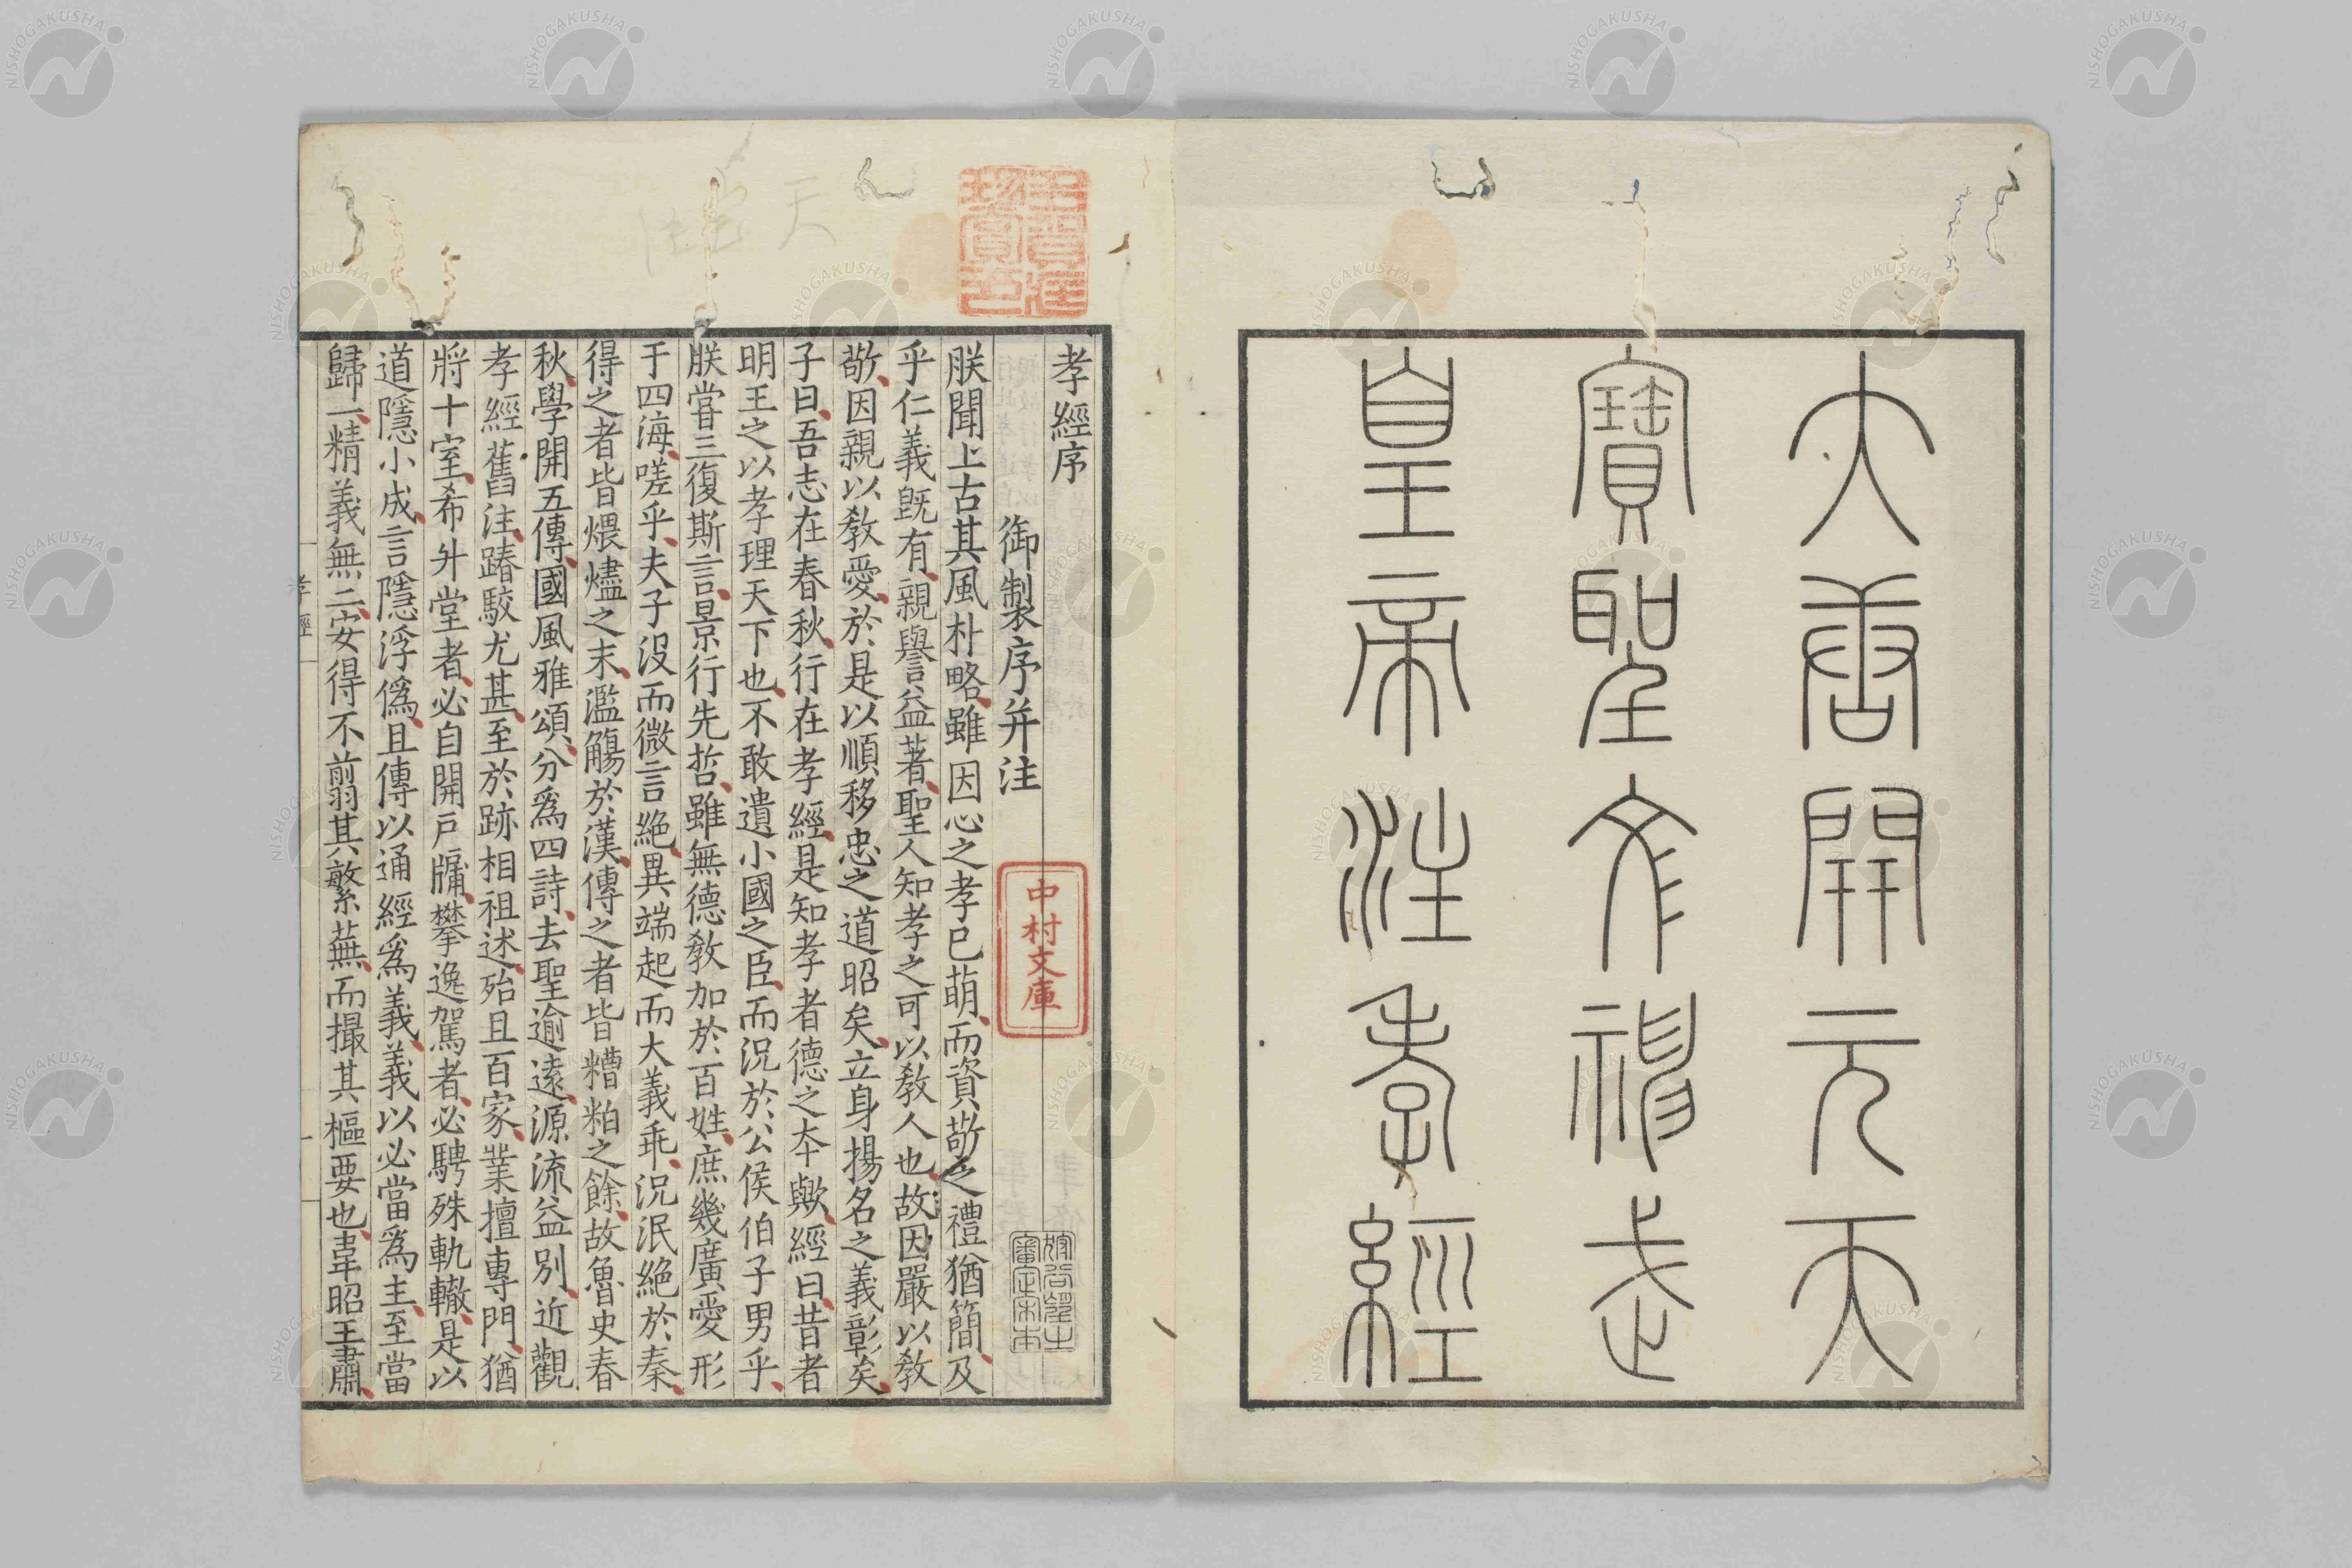 大唐開元天
寶聖文神武
皇帝注孝經
孝經序
御製序并注
中村文庫
朕聞上古其風朴略雖因心之孝已萌而資敬之禮猶簡及
乎仁義旣有親譽益著聖人知孝之可以敎人也故因嚴以敎
敬因親以敎愛於是以順移忠之道昭矣立身揚名之義彰矣
子曰吾志在春秋行在孝經是知孝者德之本歟經曰昔者
明王之以孝理天下也不敢遺小國之臣而況於公侯伯子男乎
朕嘗三復斯言景行先哲雖無德敎加於百姓庶幾廣愛形
于四海嗟乎夫子沒而微言絶異端起而大義乖況泯絶於秦
得之者皆煨燼之末濫觴於漢傳之者皆糟粕之餘故魯史春
秋學開五傳國風雅頌分爲四詩去聖逾遠源流益別近觀
孝經舊注踳駮尤甚至於跡相祖述殆且百家業擅專門猶
將十室希升堂者必自開戶牖攀逸駕者必騁殊軌轍是以
道隱小成言隱浮僞且傳以通經爲義義以必當爲主至當
歸一精義無二安得不翦其繁蕪而撮其樞要也韋昭王肅
孝經
NISHOGAKUSHA